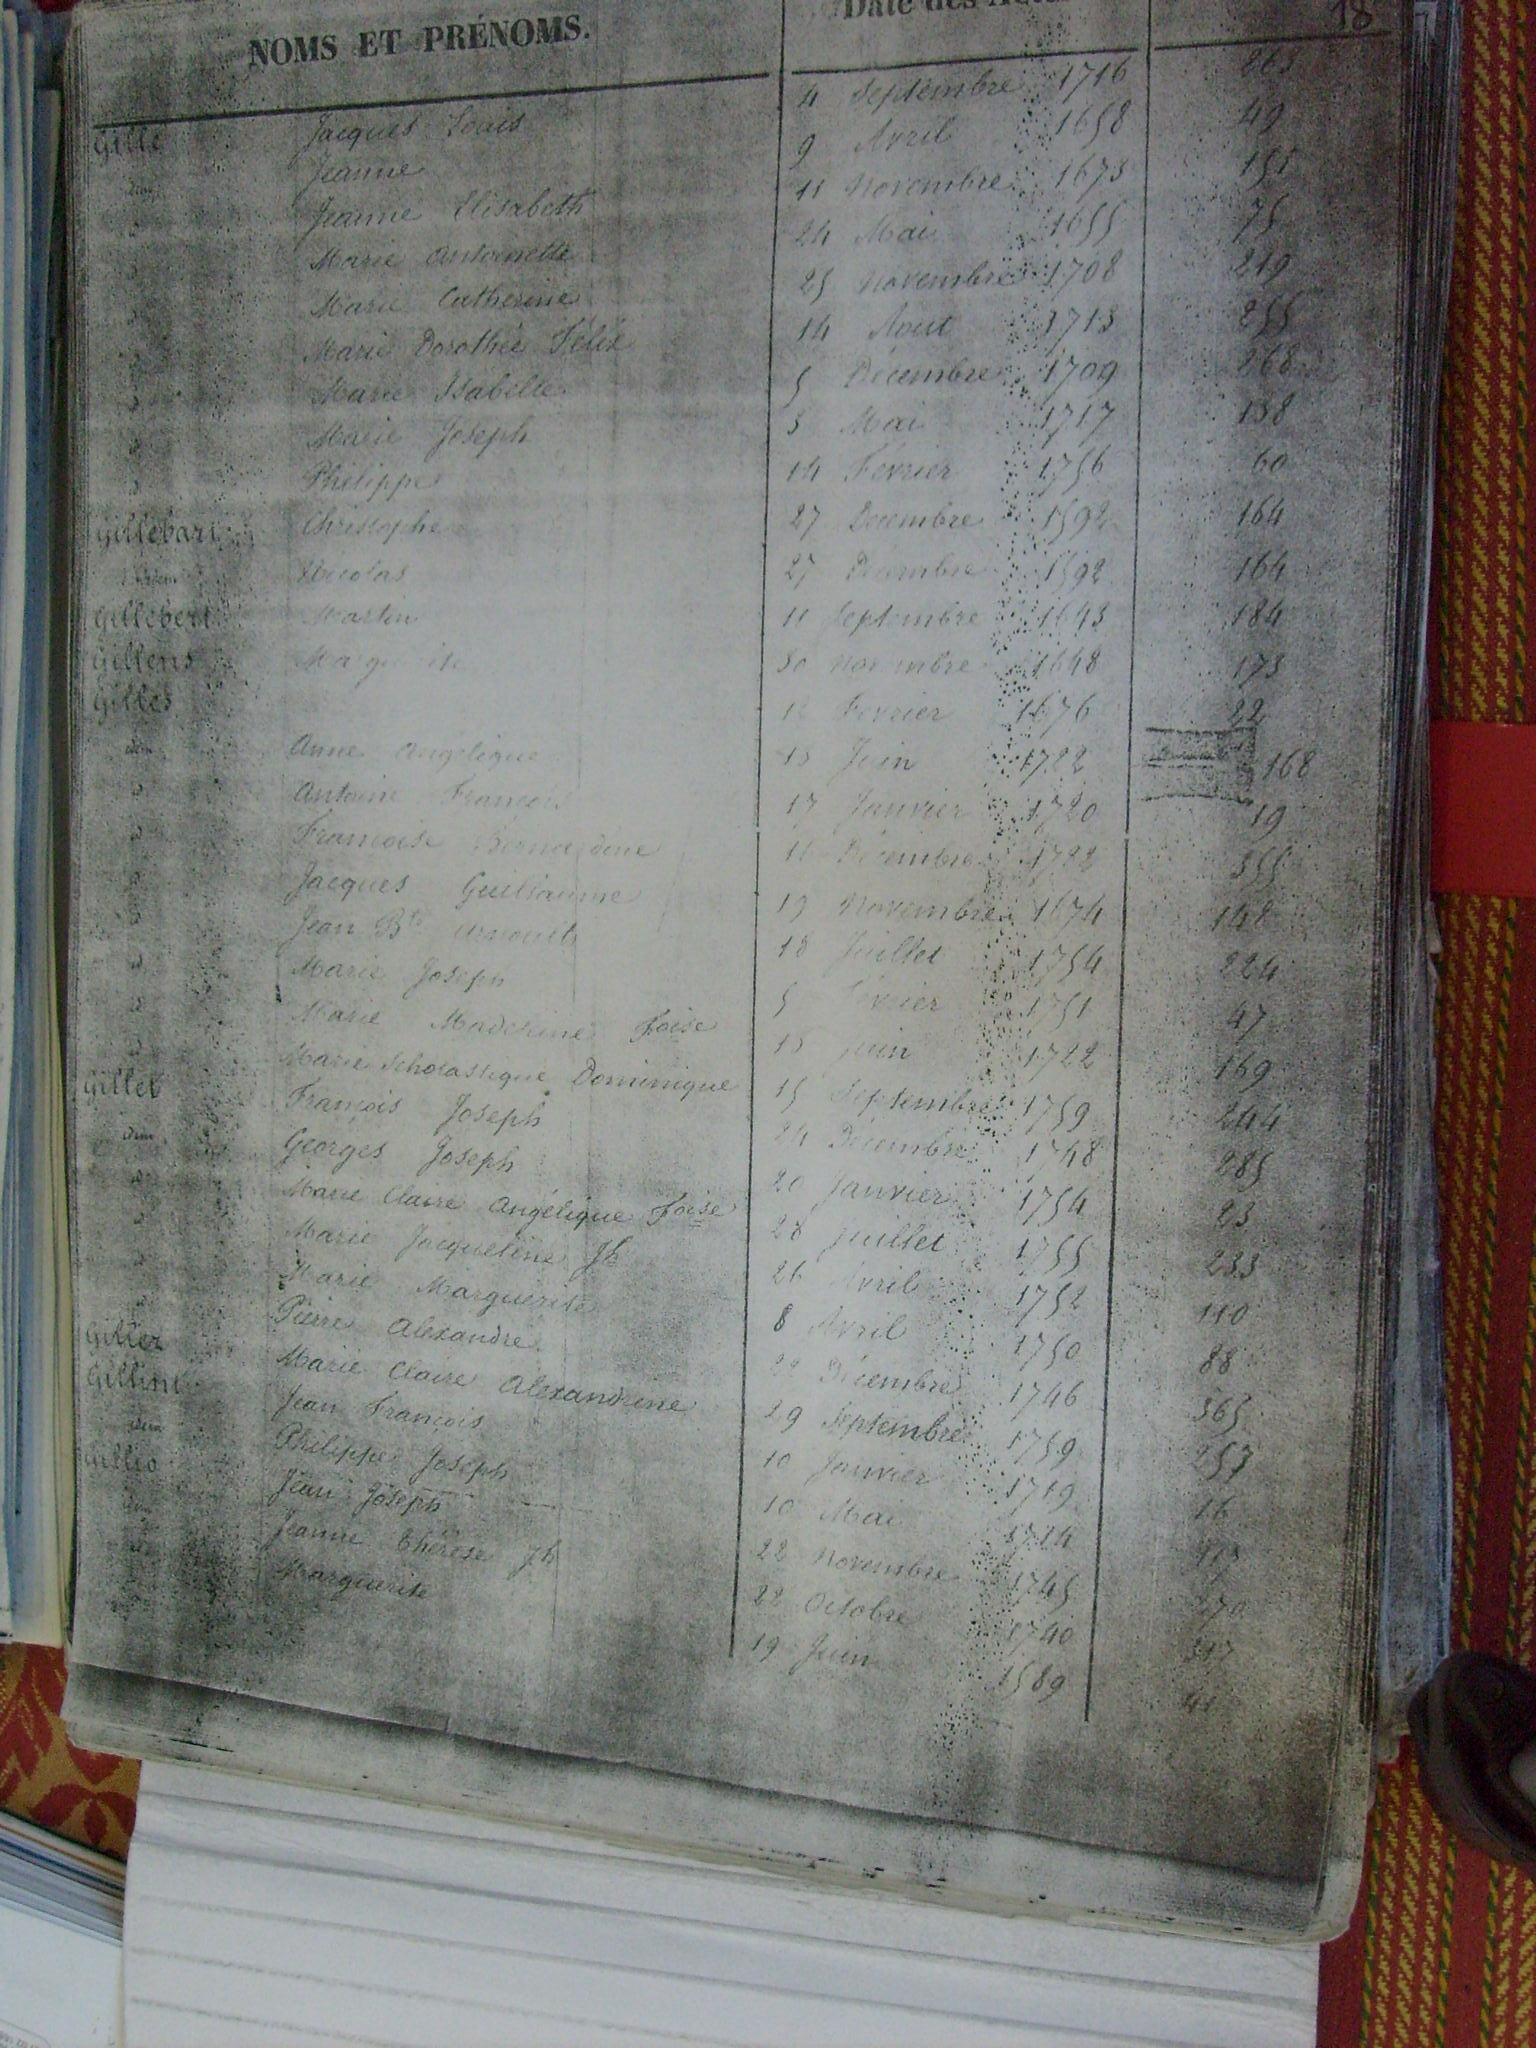 NOMS ET PRÉNOMS. Date des 18
Gille Jacques Louis 4 Septembre 1716 263
idem Jeanne 9 Avril 1658 49
d Jeanne Elisabeth 11 Novembre 1673 151
d Marie Antoinette 24 Mai 1655 75
d Marie Catherine 25 Novembre 1708 219
d Marie Dorothée Félix 14 Aout 1713 255
d Marie Isabelle 5 Décembre 1709 268
d Marie Joseph 3 Mai 1717 138
d Philippe 14 Février 1756 60
Gillebart Christophe 27 Décembre 1592 164
idem Nicolas 27 Décembre 1592 164
Gillebert Martin 11 Septembre 1643 184
Gillens Marguerite 30 Novembre 1648 173
Gilles 12 Février 1676 22
idem Anne Angélique 15 Juin 1722 168
d Antoine François 17 Janvier 1720 19
d Françoise Bernardine 11 Décembre 1722 355
d Jacques Guillaume 19 Novembre 1674 148
d Jean Bte Arnould 18 Juillet 1754 224
d Marie Joseph 5 Février 1751 47
d Marie Madeleine Foise 15 Juin 1722 169
d Marie Scholastique Dominique 15 Septembre 1759 244
Gillet François Joseph 24 Décembre 1748 285
idem Georges Joseph 20 Janvier 1754 23
d Marie Claire Angélique Foise 28 Juillet 1755 233
d Marie Jacqueline Jh 26 Avril 1752 110
d Marie Marguerite 8 Avril 1750 88
d Pierre Alexandre 22 Décembre 1746 365
Gillier Marie Claire Alexandrine 29 Septembre 1759 257
Gillint Jean François 10 Janvier 1719 16
idem Philippe Joseph 10 Mai 1724
Gillio Jean Joseph 22 Novembre 1745
idem Jeanne Thérèse Jh 22 Octobre 1740 317
d Marguerite 19 Juin 1589 41